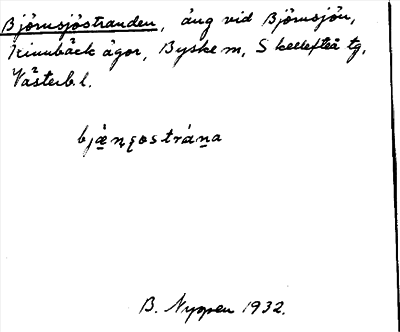 Björnsjöstranden, äng vid Björnsjön,
Kinnbäck ägor, Byske m, Skellefteå tg,
Västerb. l.
bjæ̀ṇșostrána
B. Nyppen 1932.